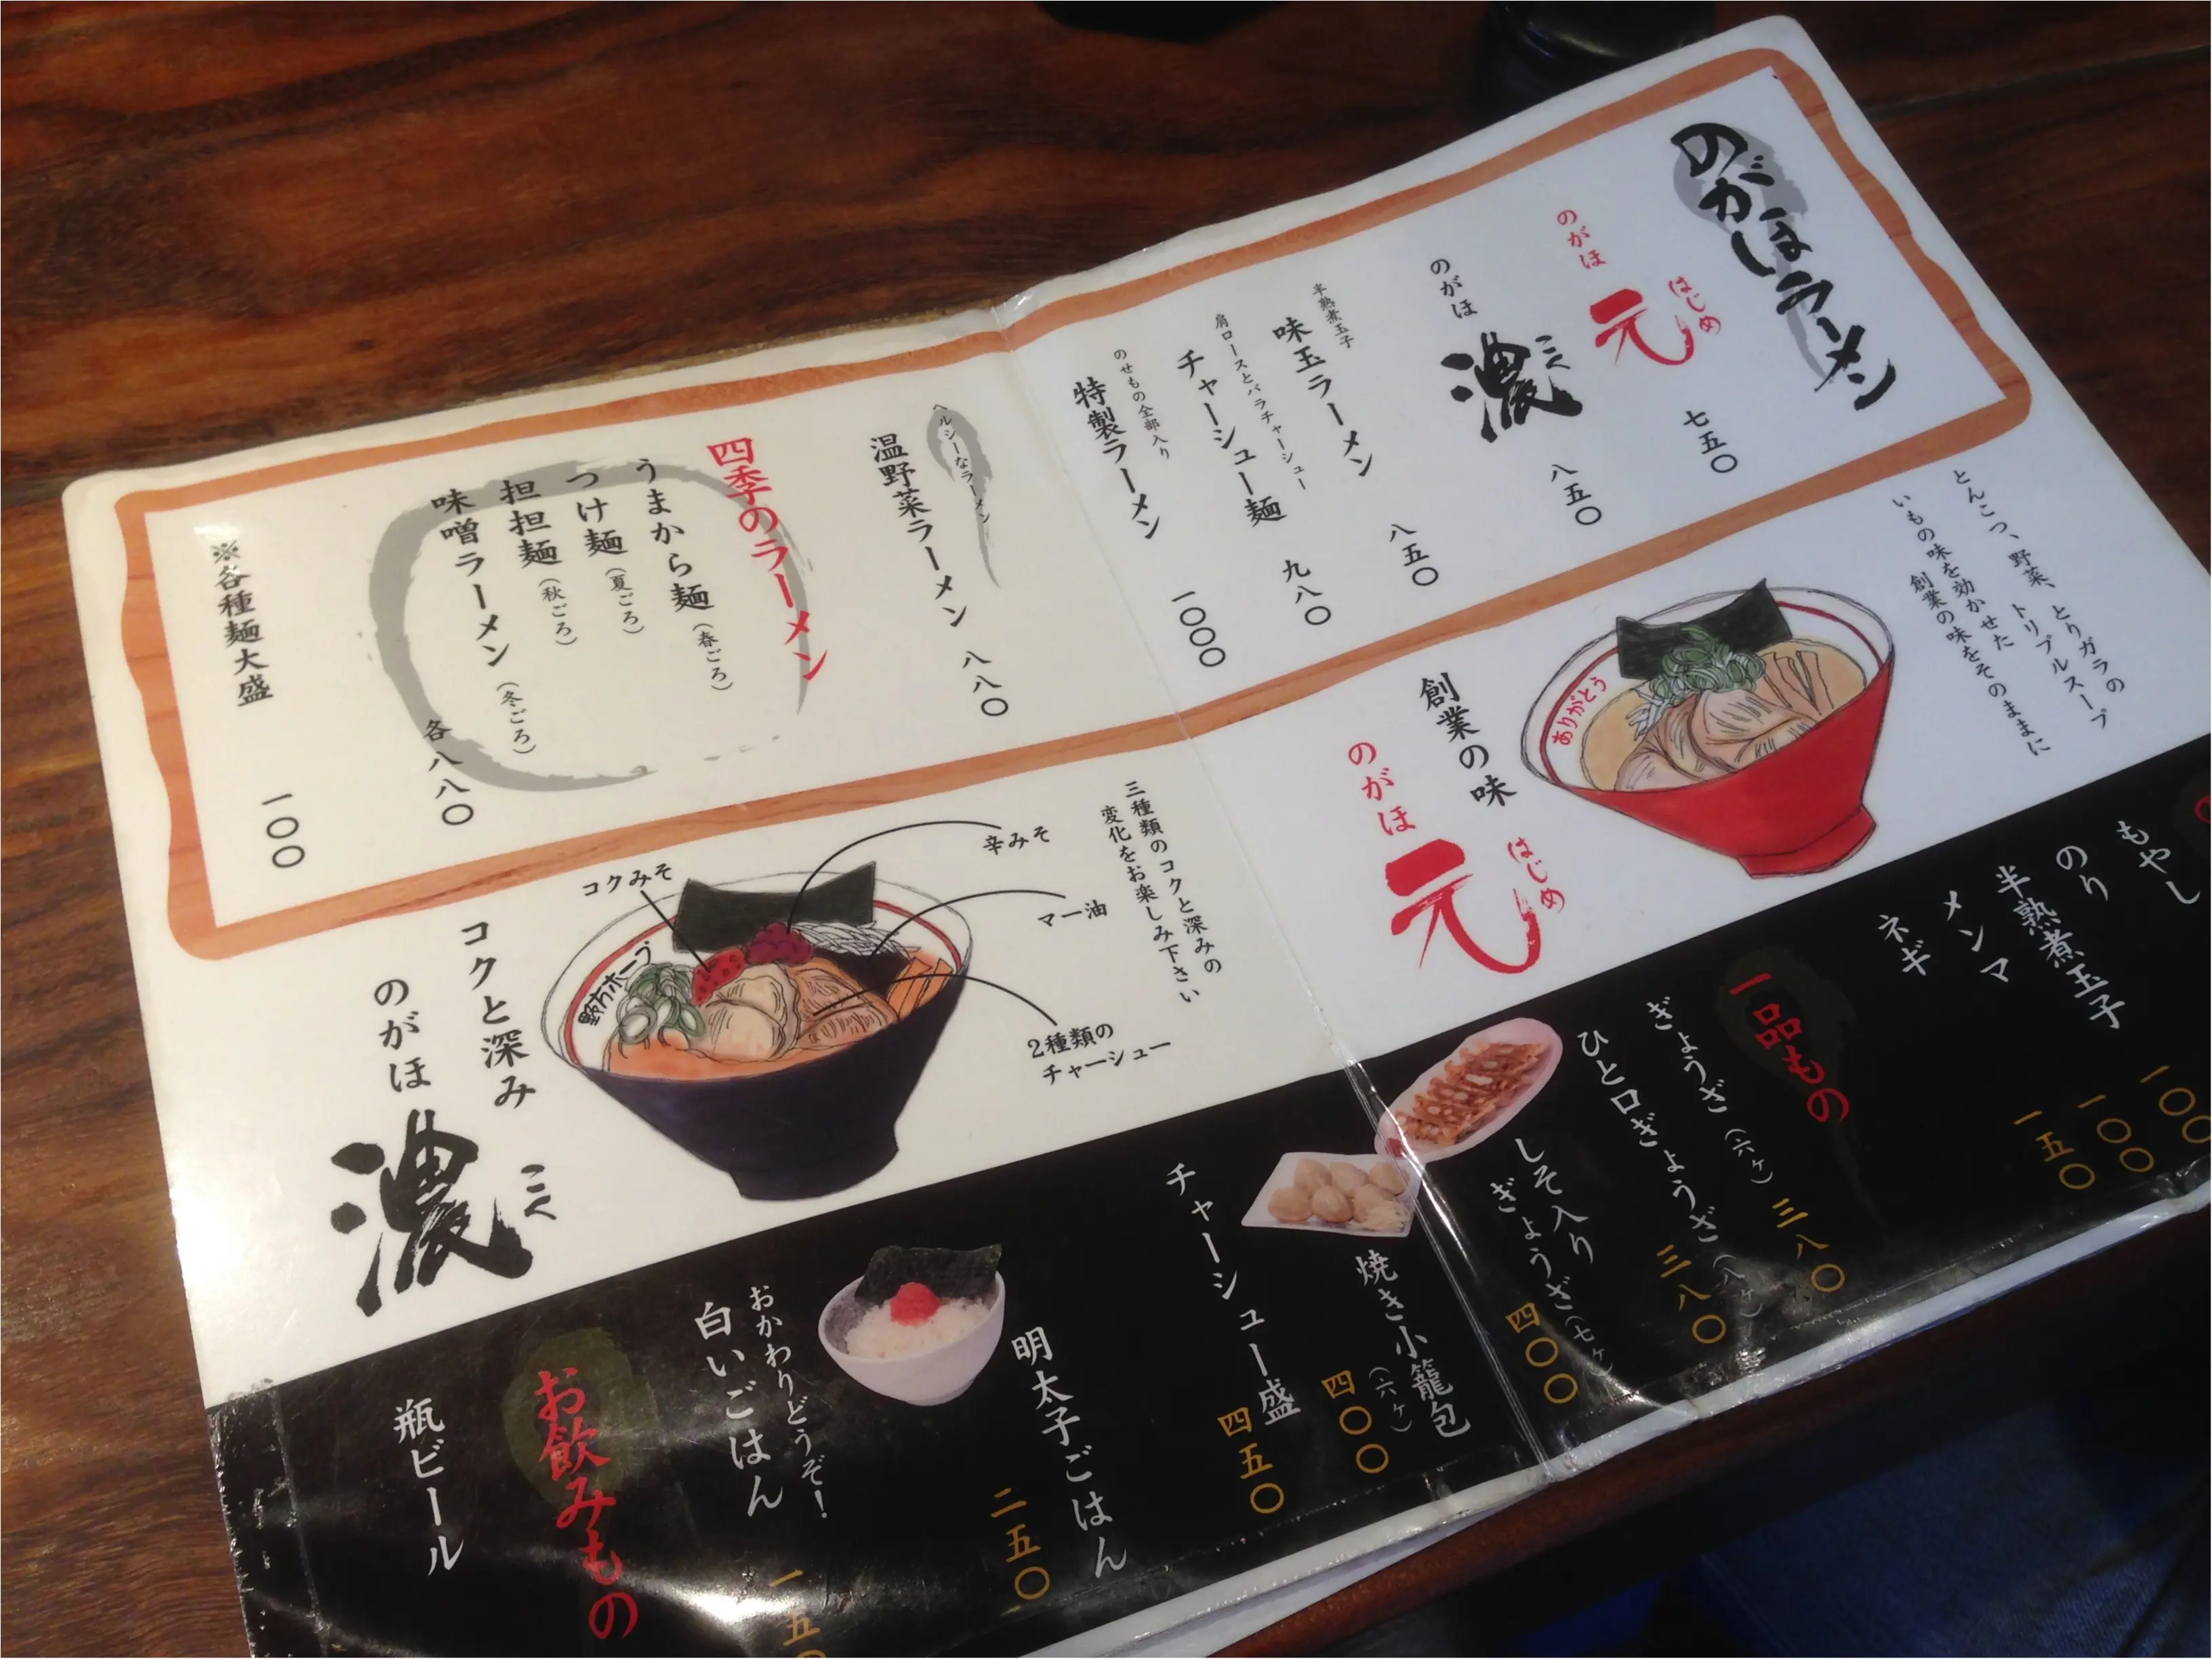 のがほラーメン
のがほ
元
はじめ
七五〇
のがほ
濃
こく
八五〇
半熟煮玉子
味玉ラーメン
八五〇
肩ロースとバラチャーシュー
チャーシュー麺
九八〇
のせもの全部入り
特製ラーメン
一〇〇〇
ヘルシーなラーメン
温野菜ラーメン
八八〇
四季のラーメン
うまから麺（春ごろ）
つけ麺（夏ごろ）
担担麺（秋ごろ）
味噌ラーメン（冬ごろ）
各八八〇
※各種麺大盛
一〇〇
とんこつ、野菜、とりガラの
トリプルスープ
いもの味を効かせた
創業の味をそのままに
ありがとう
創業の味
のがほ
元
はじめ
三種類のコクと深みの
変化をお楽しみ下さい
辛みそ
マー油
コクみそ
2種類の
チャーシュー
野方ホープ
コクと深み
のがほ
濃
こく
もやし
一〇〇
のり
一〇〇
半熟煮玉子
一五〇
メンマ
ネギ
一品もの
ぎょうざ（六ヶ）
三八〇
ひと口ぎょうざ（八ヶ）
三八〇
しそ入り
ぎょうざ（七ヶ）
四〇〇
焼き小籠包
（六ヶ）
四〇〇
チャーシュー盛
四五〇
明太子ごはん
二五〇
おかわりどうぞ！
白いごはん
一五〇
お飲みもの
瓶ビール